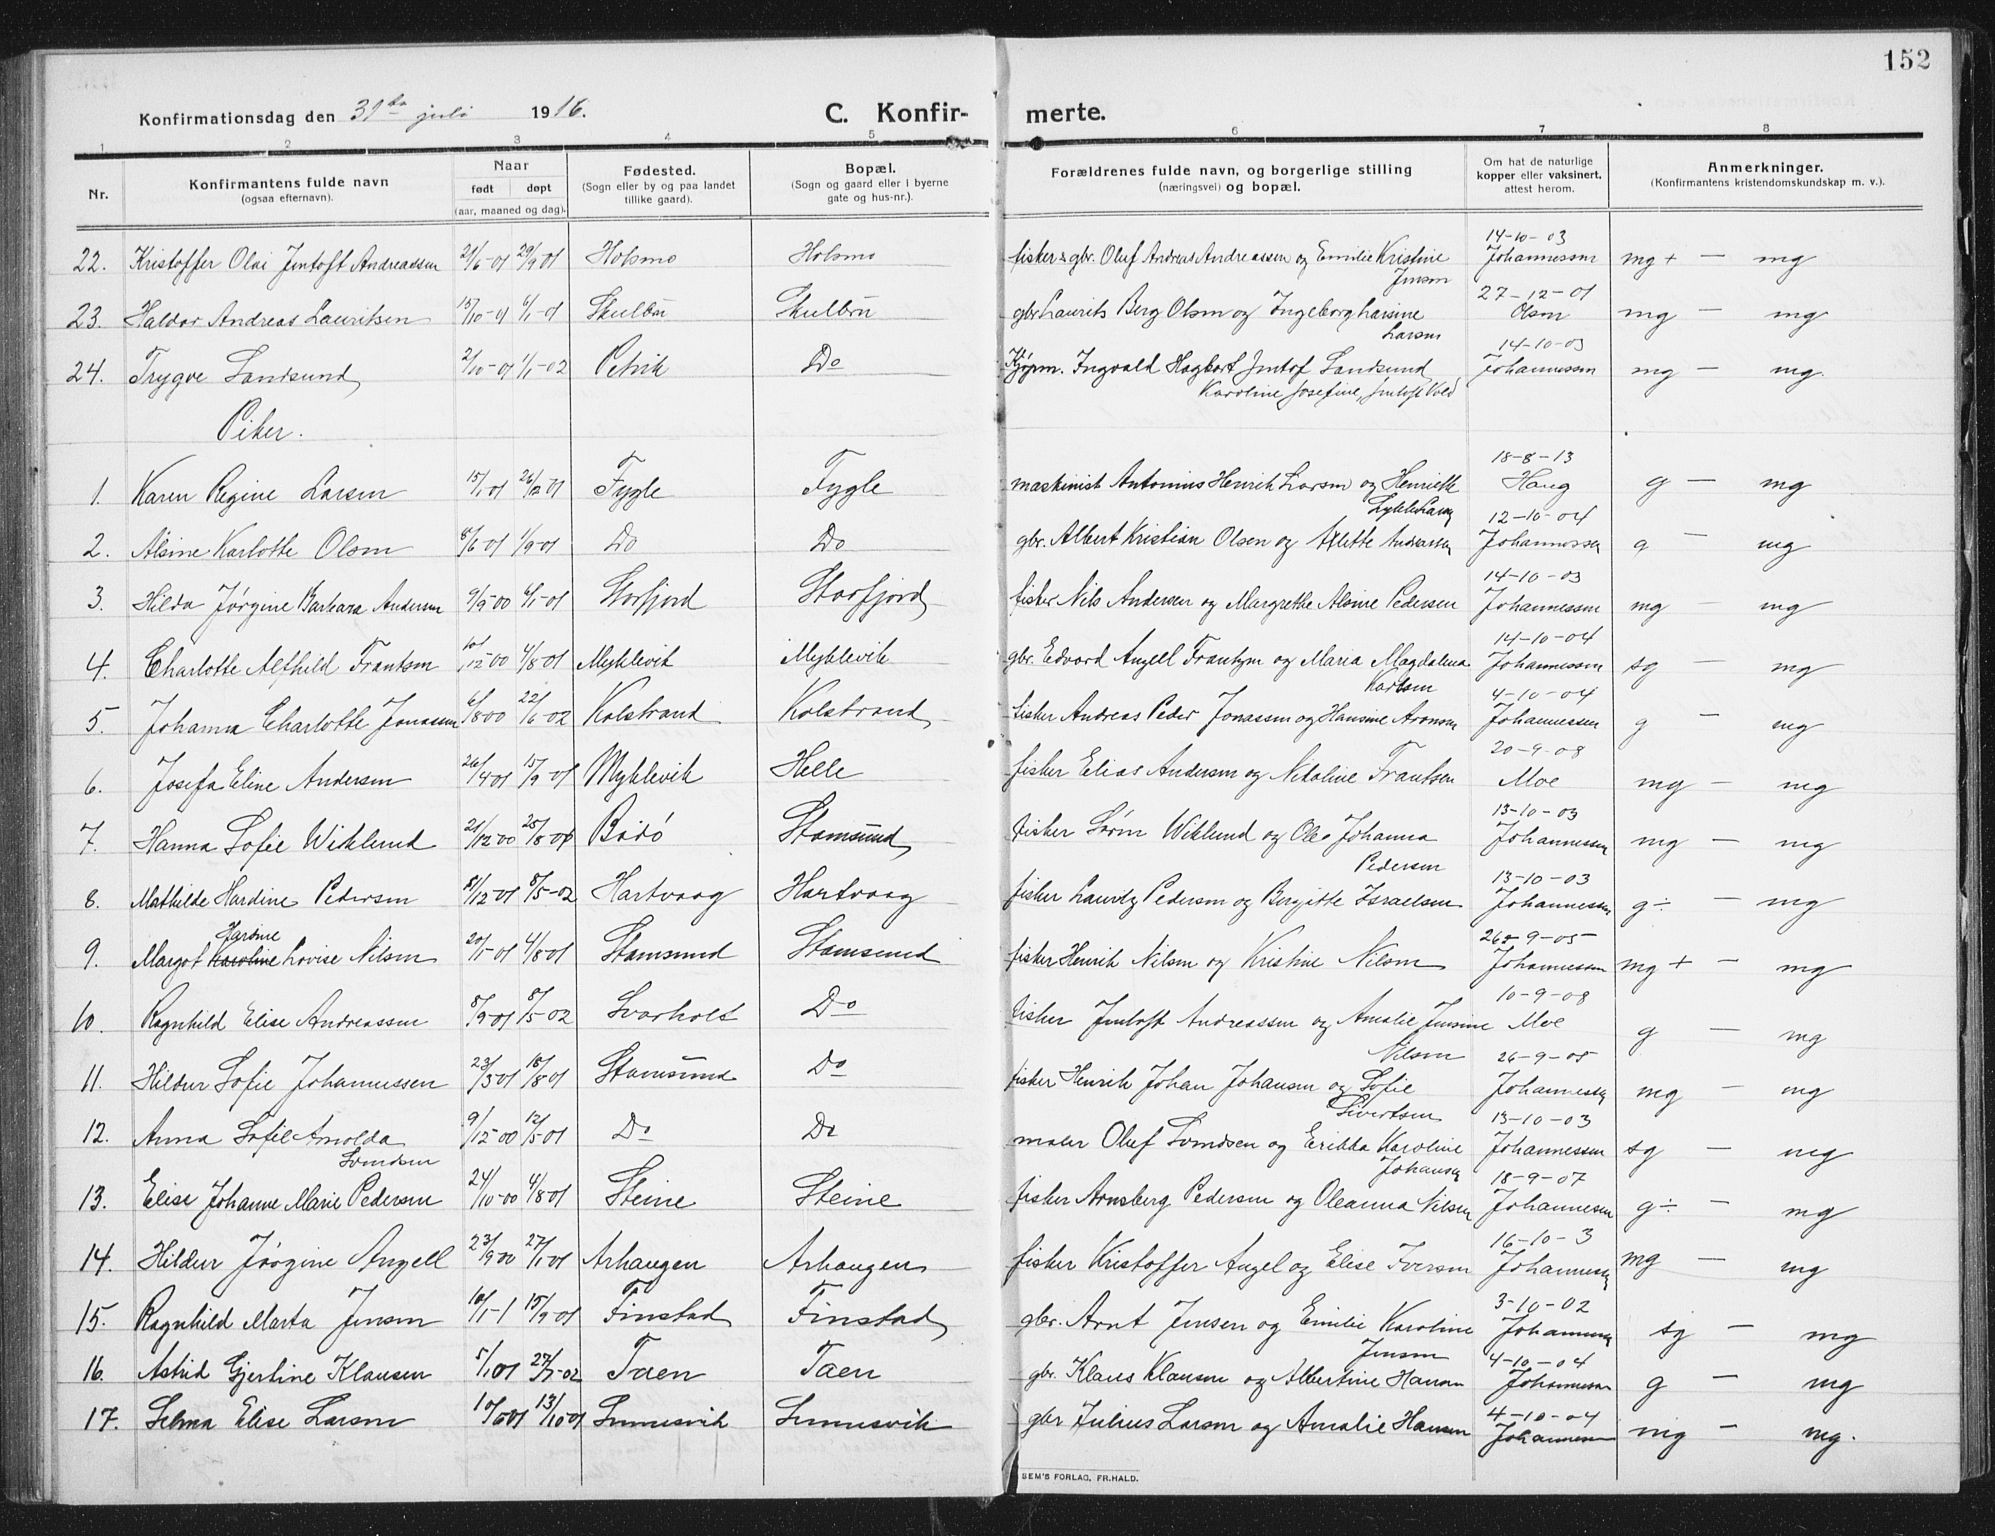 152
Konfirmationsdag den 31te juli 1916.
C. Konfir-
merte.
1 2 3 4 5 6 7 8
Nr.
Konfirmantens fulde navn
(ogsaa efternavn).
Naar
født døpt
(aar, maaned og dag).
Fødested.
(Sogn eller by og paa landet
tillike gaard).
Bopæl.
(Sogn og gaard eller i byerne
gate og hus-nr.).
Forældrenes fulde navn, og borgerlige stilling
(næringsvei) og bopæl.
Om hat de naturlige
kopper eller vaksinert,
attest herom.
Anmerkninger.
(Konfirmantens kristendomskundskap m. v.).
22. Kristoffer Olai Jentoft Andreassen 21/6-01 29/9 01 Holsmo Holsmo fisker & gbr. Oluf Andreas Andreassen og Emilie Kristine Jensen 14-10-03 Johannessen mg + — mg
23. Haldor Andreas Lauritsen 15/10-01 6/1-01 Skulbru Skulbru gbr. Laurits Berg Olsen og Ingeborg Larsine Larsen 27-12-01 Olsen mg — mg
24. Trygve Sandsund 2/10-01 1/1-02 Petvik Do Kjøpm. Ingvald Hagbart Jentof Sandsund Karoline Josefine Jentoft Vold 14-10-03 Johannessen mg — mg.
Piker.
1. Karen Regine Larsen 15/1 01 26/12 01 Fygle Fygle maskinist Antonius Henrik Larsen og Henriette 18-8-13 Haug g — mg
2. Alsine Karlotte Olsen 8/6 01 1/9-01 Do Do gbr. Albert Kristian Olsen og Axlette Andreassen 12-10-04 Johannessen g — mg
3. Hilda Jørgine Barbara Andersen 9/9-00 6/1-01 Storfjord Storfjord fisker Nils Andersen og Margrethe Alsine Pedersen 14-10-03 Johannessen mg mg
4. Charlotte Alfhild Frantsen 10/12-00 4/8 01 Myklevik Myklevik gbr. Edvard Angell Frantzen og Maria Magdalena Karlsen 14-10-04 Johannessen sg — mg
5. Johanna Charlotte Jonassen 6/8 00 22/6-02 Kolstrand Kolstrand fisker Andreas Peder Jonassen og Hansine Aronsen 4-10-04 Johannessen g — mg
6. Josefa Eline Andersen 26/4 01 15/9-01 Myklevik Helle fisker Elias Andersen og Nikoline Frantsen 20-9-08 Moe mg — mg
7. Hanna Sofie Wiklund 21/12 00 25/8-01 Bodø Stamsund fisker Søren Wiklund og Ole Johanna Pedersen 13-10-03 Johannessen mg — mg
8. Mathilde Hardine Pedersen 31/12-01 8/5-02 Hartvaag Hartvaag fisker Lauritz Pedersen og Bergitte Israelsen 13-10-03 Johannessen g ÷ — mg
9. Margot Karoline Hardine Lovise Nilsen 20/5-01 4/8 01 Stamsund Stamsund fisker Henrik Nilsen og Kristine Nilsen 26-9-05 Johannessen mg + — mg
10. Ragnhild Elise Andreassen 8/9-01 8/5-02 Svarholt Do fisker Jentoft Andreassen og Amalie Jensine Nilsen 10-9-08 Moe g — mg
11. Hildur Sofie Johannessen 23/5 01 18/8 01 Stamsund Do fisker Henrik Johan Johansen og Sofie Sivertsen 26-9-05 Johannessen mg — mg
12. Anna Sofie Arnolda Svendsen 9/12 00 12/5 01 Do Do maler Oluf Svendsen og Erikka Karoline Johansen 13-10-03 Johannessen sg — mg
13. Elise Johanne Marie Pedersen 24/10-00 4/8 01 Steine Steine fisker Arnsberg Pedersen og Oleanna Nilsen 18-9-07 Johannessen g ÷ — mg
14. Hildur Jørgine Angell 23/9 00 27/1 01 Arhaugen Arhaugen fisker Kristoffer Angel og Elise Iversen 16-10-3 Johannessen mg — mg
15. Ragnhild Marta Jensen 10/1-1 15/9-01 Finstad Finstad gbr. Arnt Jensen og Emilie Karoline Jensen 3-10-02 Johannessen sg — mg
16. Astrid Gjertine Klausen 5/1 01 27/7-02 Taen Taen gbr. Klaus Klausen og Albertine Hansen 4-10-04 Johannessen g — mg
17. Selma Elise Larsen 13/10-01 Sennesvik Sennesvik gbr Julius Larsen og Amalie Hansen 4-10-04 Johannessen mg — mg.
SEM'S FORLAG, FR.HALD.